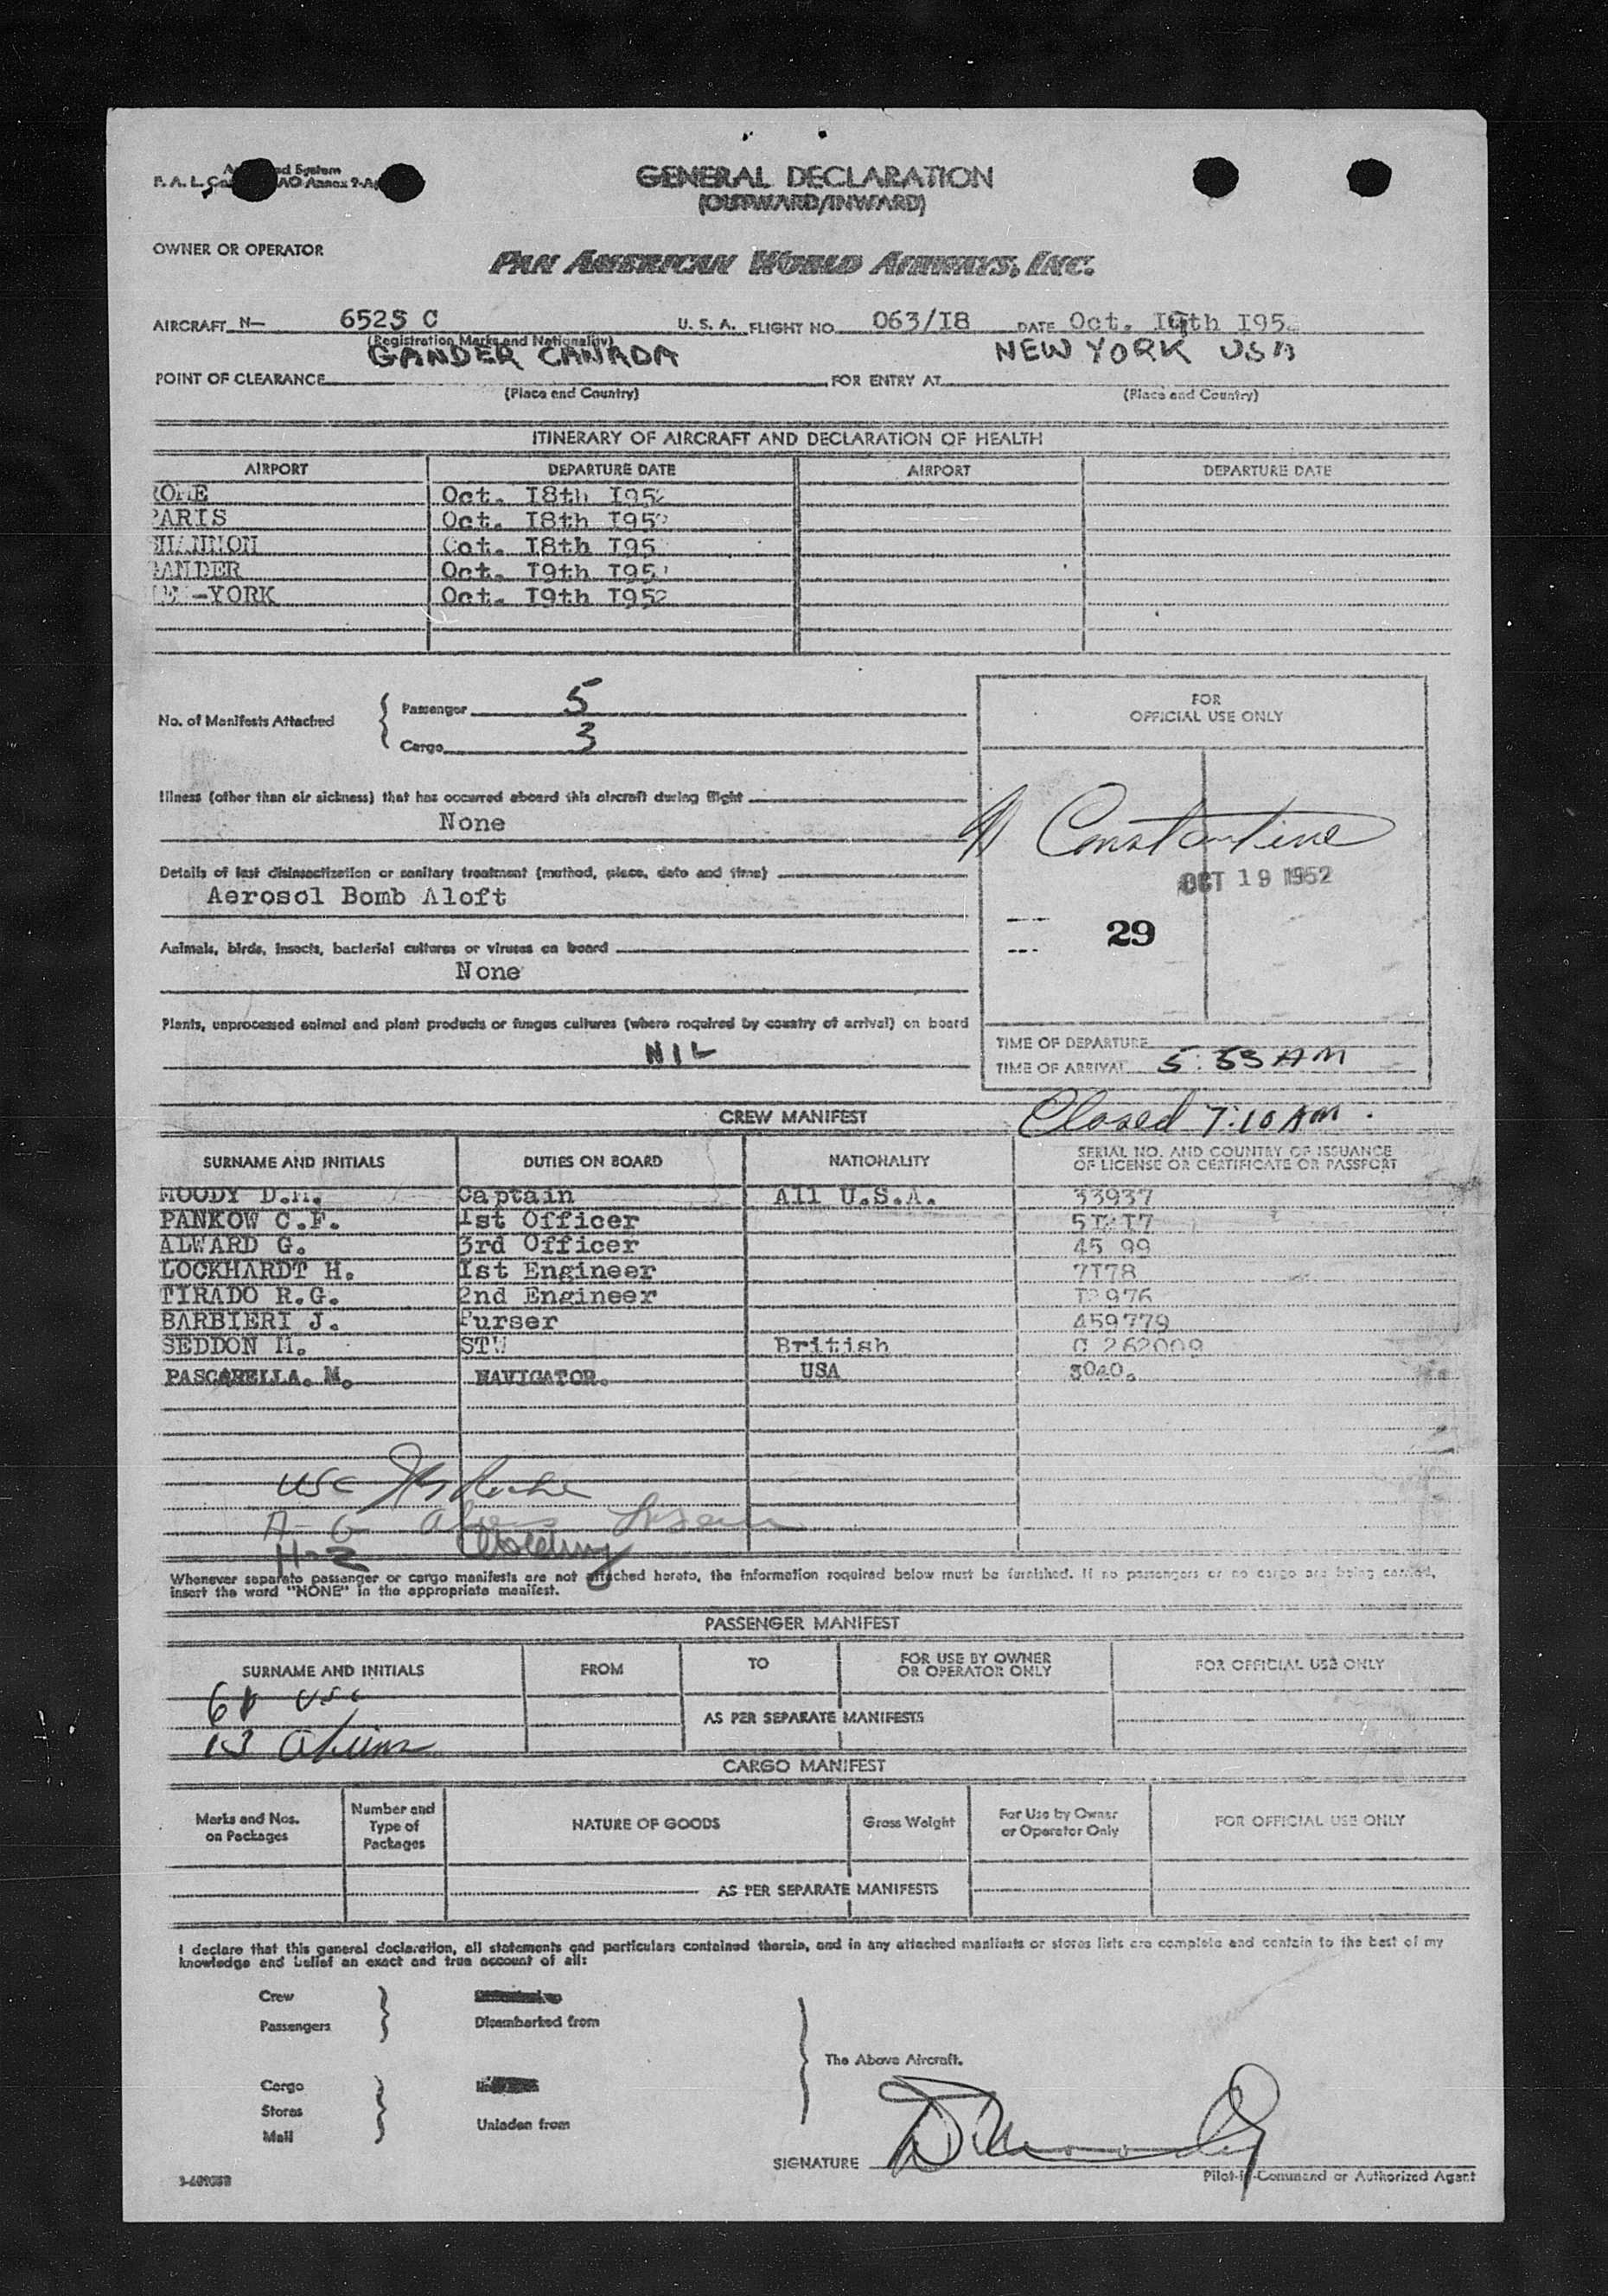 GENERAL DECLARATION
(OUTWARD/INWARD)
OWNER OR OPERATOR
PAN AMERICAN WORLD AIRWAYS, INC.
AIRCRAFT N- 6525 C U. S. A. FLIGHT NO. 063/I8 DATE Oct. I9th I95
(Registration Marks and Nationality)
GANDER CANADA NEW YORK USA
POINT OF CLEARANCE FOR ENTRY AT
(Place and Country) (Place and Country)
ITINERARY OF AIRCRAFT AND DECLARATION OF HEALTH
AIRPORT DEPARTURE DATE AIRPORT DEPARTURE DATE
ROME Oct. I8th I952
PARIS Oct. I8th I952
SHANNON Oct. I8th I95
GANDER Oct. I9th I95
-YORK Oct. I9th I952
No. of Manifests Attached
Passenger 5
Cargo 3
Illness (other than air sickness) that has occurred aboard this aircraft during flight
None
Details of last disinsectization or sanitary treatment (method, place, date and time)
Aerosol Bomb Aloft
Animals, birds, insects, bacterial cultures or viruses on board
None
Plants, unprocessed animal and plant products or fungus cultures (where required by country of arrival) on board
NIL
FOR
OFFICIAL USE ONLY
Constantine
OCT 19 1952
29
TIME OF DEPARTURE
TIME OF ARRIVAL 5:53 AM
Closed 7:10 AM.
CREW MANIFEST
SURNAME AND INITIALS DUTIES ON BOARD NATIONALITY SERIAL NO. AND COUNTRY OF ISSUANCE
OF LICENSE OR CERTIFICATE OR PASSPORT
MOODY D.M. Captain All U.S.A. 33937
PANKOW C.F. 1st Officer
ALWARD G. 3rd Officer 45 99
LOCKHARDT H. Ist Engineer 7I78
TIRADO R.G. 2nd Engineer
BARBIERI J. Purser 459779
SEDDON M. STW British C 262009
PASCARELLA. M. NAVIGATOR. USA 3040.
USC
A-6
H-2
Whenever separate passenger or cargo manifests are not attached hereto, the information required below must be furnished. If no passengers or no cargo are being carried,
insert the word "NONE" in the appropriate manifest.
PASSENGER MANIFEST
SURNAME AND INITIALS FROM TO FOR USE BY OWNER
OR OPERATOR ONLY FOR OFFICIAL USE ONLY
USC
AS PER SEPARATE MANIFESTS
13 Aliens
CARGO MANIFEST
Marks and Nos.
on Packages
Number and
Type of
Packages
NATURE OF GOODS
Gross Weight
For Use by Owner
or Operator Only
FOR OFFICIAL USE ONLY
AS PER SEPARATE MANIFESTS
I declare that this general declaration, all statements and particulars contained therein, and in any attached manifests or stores lists are complete and contain to the best of my
knowledge and belief an exact and true account of all:
Crew
Passengers
Disembarked from
The Above Aircraft.
Cargo
Stores
Mail
Unladen from
SIGNATURE D M Moody
Pilot-in-Command or Authorized Agent